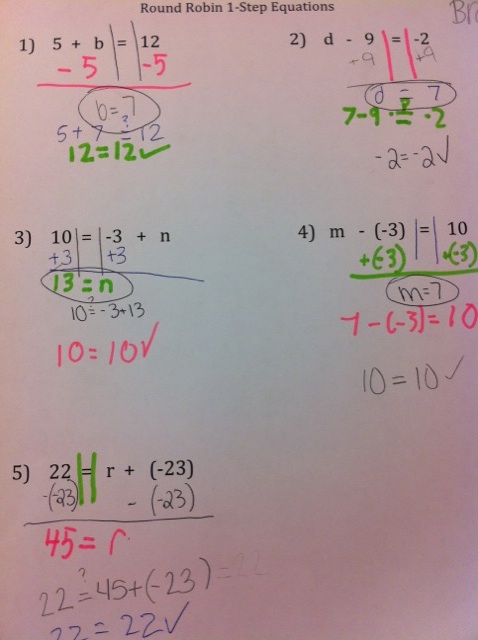 Round Robin 1-Step Equations
1) 5 + b = 12
- 5 -5
b = 7
5 + 7 ≟ 12
12 = 12 ✓
2) d - 9 = -2
+9 +9
d = 7
7 - 9 ≟ -2
-2 = -2 ✓
3) 10 = -3 + n
+3 +3
13 = n
10 ≟ -3 + 13
10 = 10 ✓
4) m - (-3) = 10
+(-3) +(-3)
m = 7
7 - (-3) = 10
10 = 10 ✓
5) 22 = r + (-23)
-(-23) - (-23)
45 = r
22 ≟ 45 + (-23) = 22
22 = 22 ✓